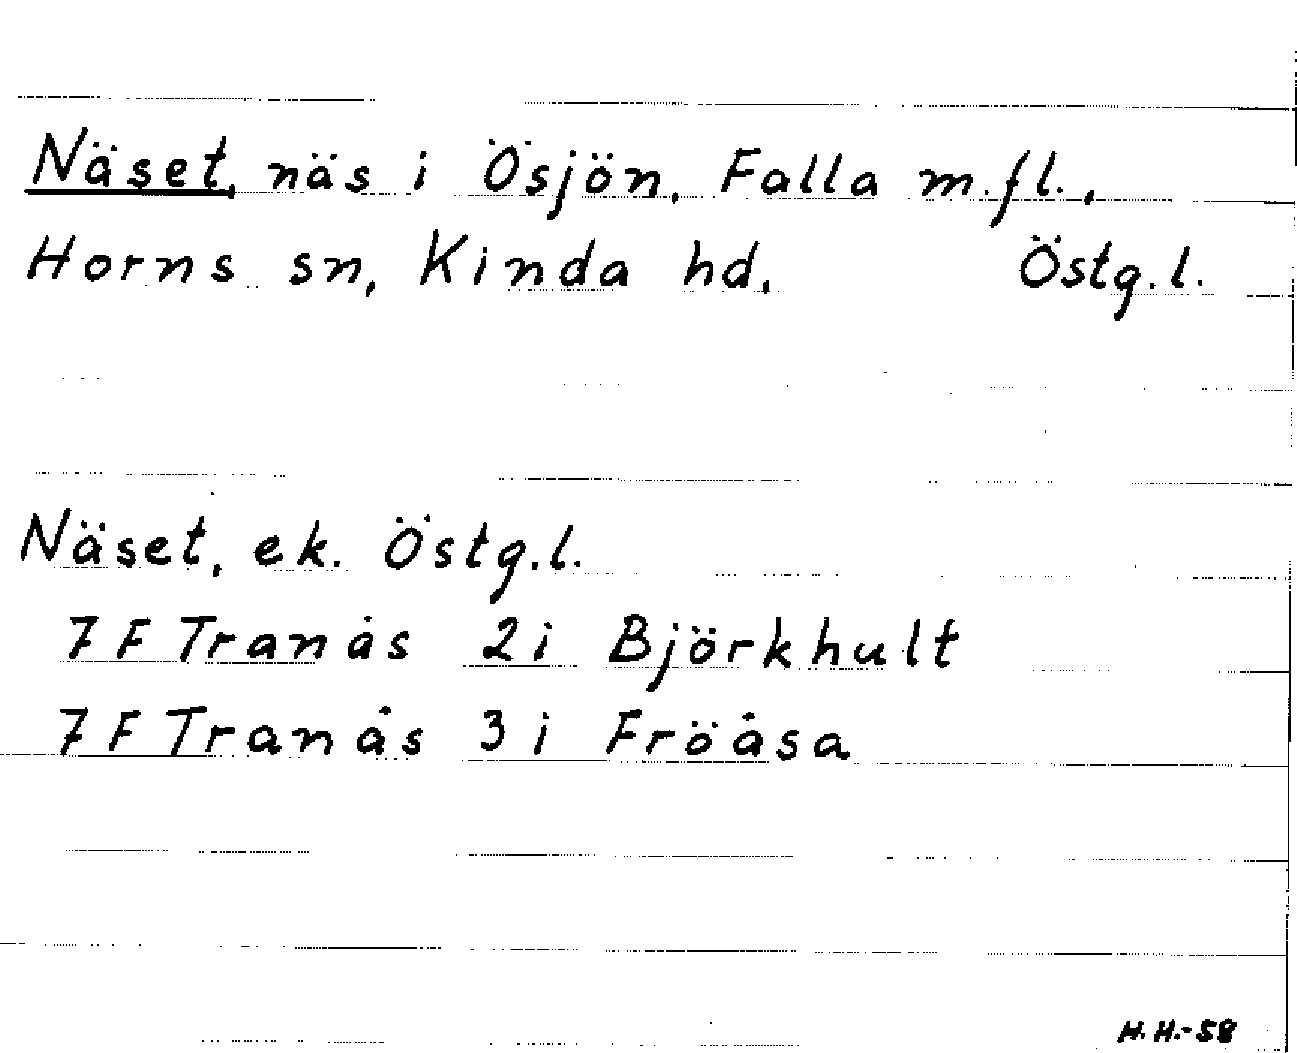 Näset, näs i Ösjön, Falla m.fl.,
Horns sn, Kinda hd, Östg.l.
Näset, ek. Östg.l.
7 F Tranås 2 i Björkhult
7 F Tranås 3 i Fröåsa
H.H.-58